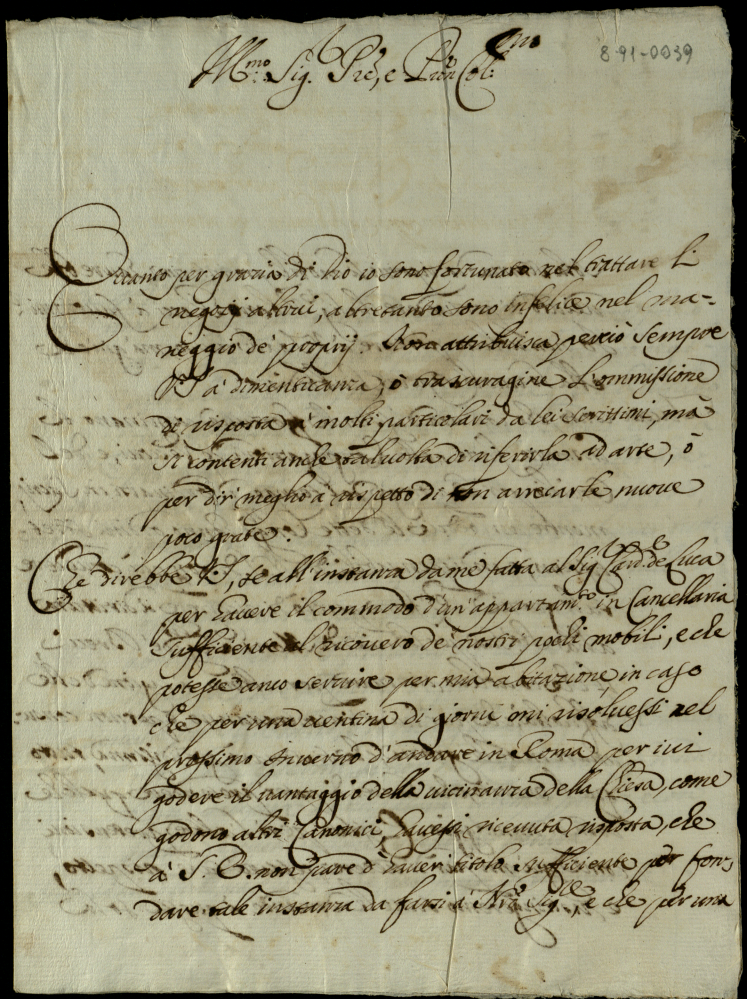 8-91-0039
Ill.mo Sig.r Pre, e Pron Col.mo
Quanto per grazia di Dio io sono fortunato nel trattare li
negozj altrui, altretanto sono infelice nel ma=
neggio de proprij. Non attribuisca perciò sempre
V.S. a' dimenticanza, ò trascuragine l'ommissione
di risposta a' molti particolari da lei scrittimi, mà
si contenti anche talvolta di riferirla ad arte, ò
per dir meglio a' rispetto di non arrecarle nuove
poco grate.
Che direbbe V.S., se all'instanza da me fatta al Sig.r Card. de Luca
per havere il commodo d'un appartam.to in Cancellaria
sufficiente al ricovero de nostri pochi mobili, e che
potesse anco servire per mia abitazione in caso
che per una ventina di giorni mi risolvessi nel
prossimo Inverno d'andare in Roma per ivi
godere il vantaggio della vicinanza della Chiesa, come
godono altri Canonici, havessi ricevuta risposta, che
a' S. E. non pare d'haver titolo sufficiente per fon=
dare tale instanza da farsi a' N.ro Sig.re, e che per una